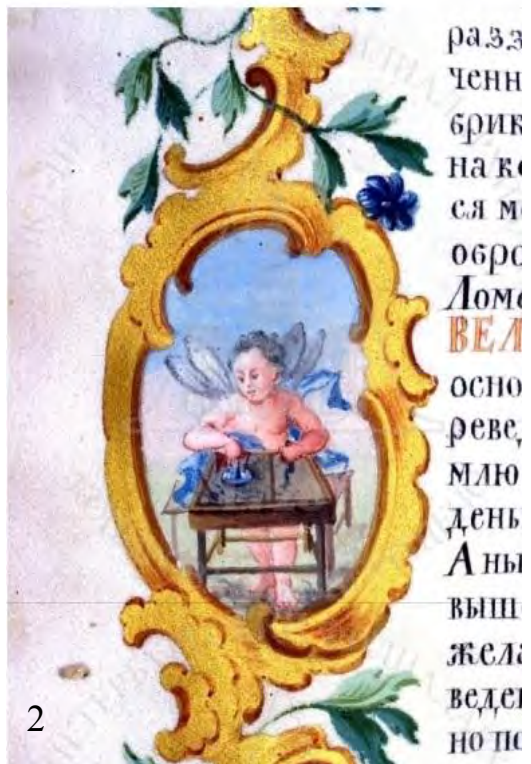 разз
ченн
брик
на ко
ся м
обро
Ломо
ВЕЛ
осно
реве
млю
день
А ны
выш
жела
веде
но по
2